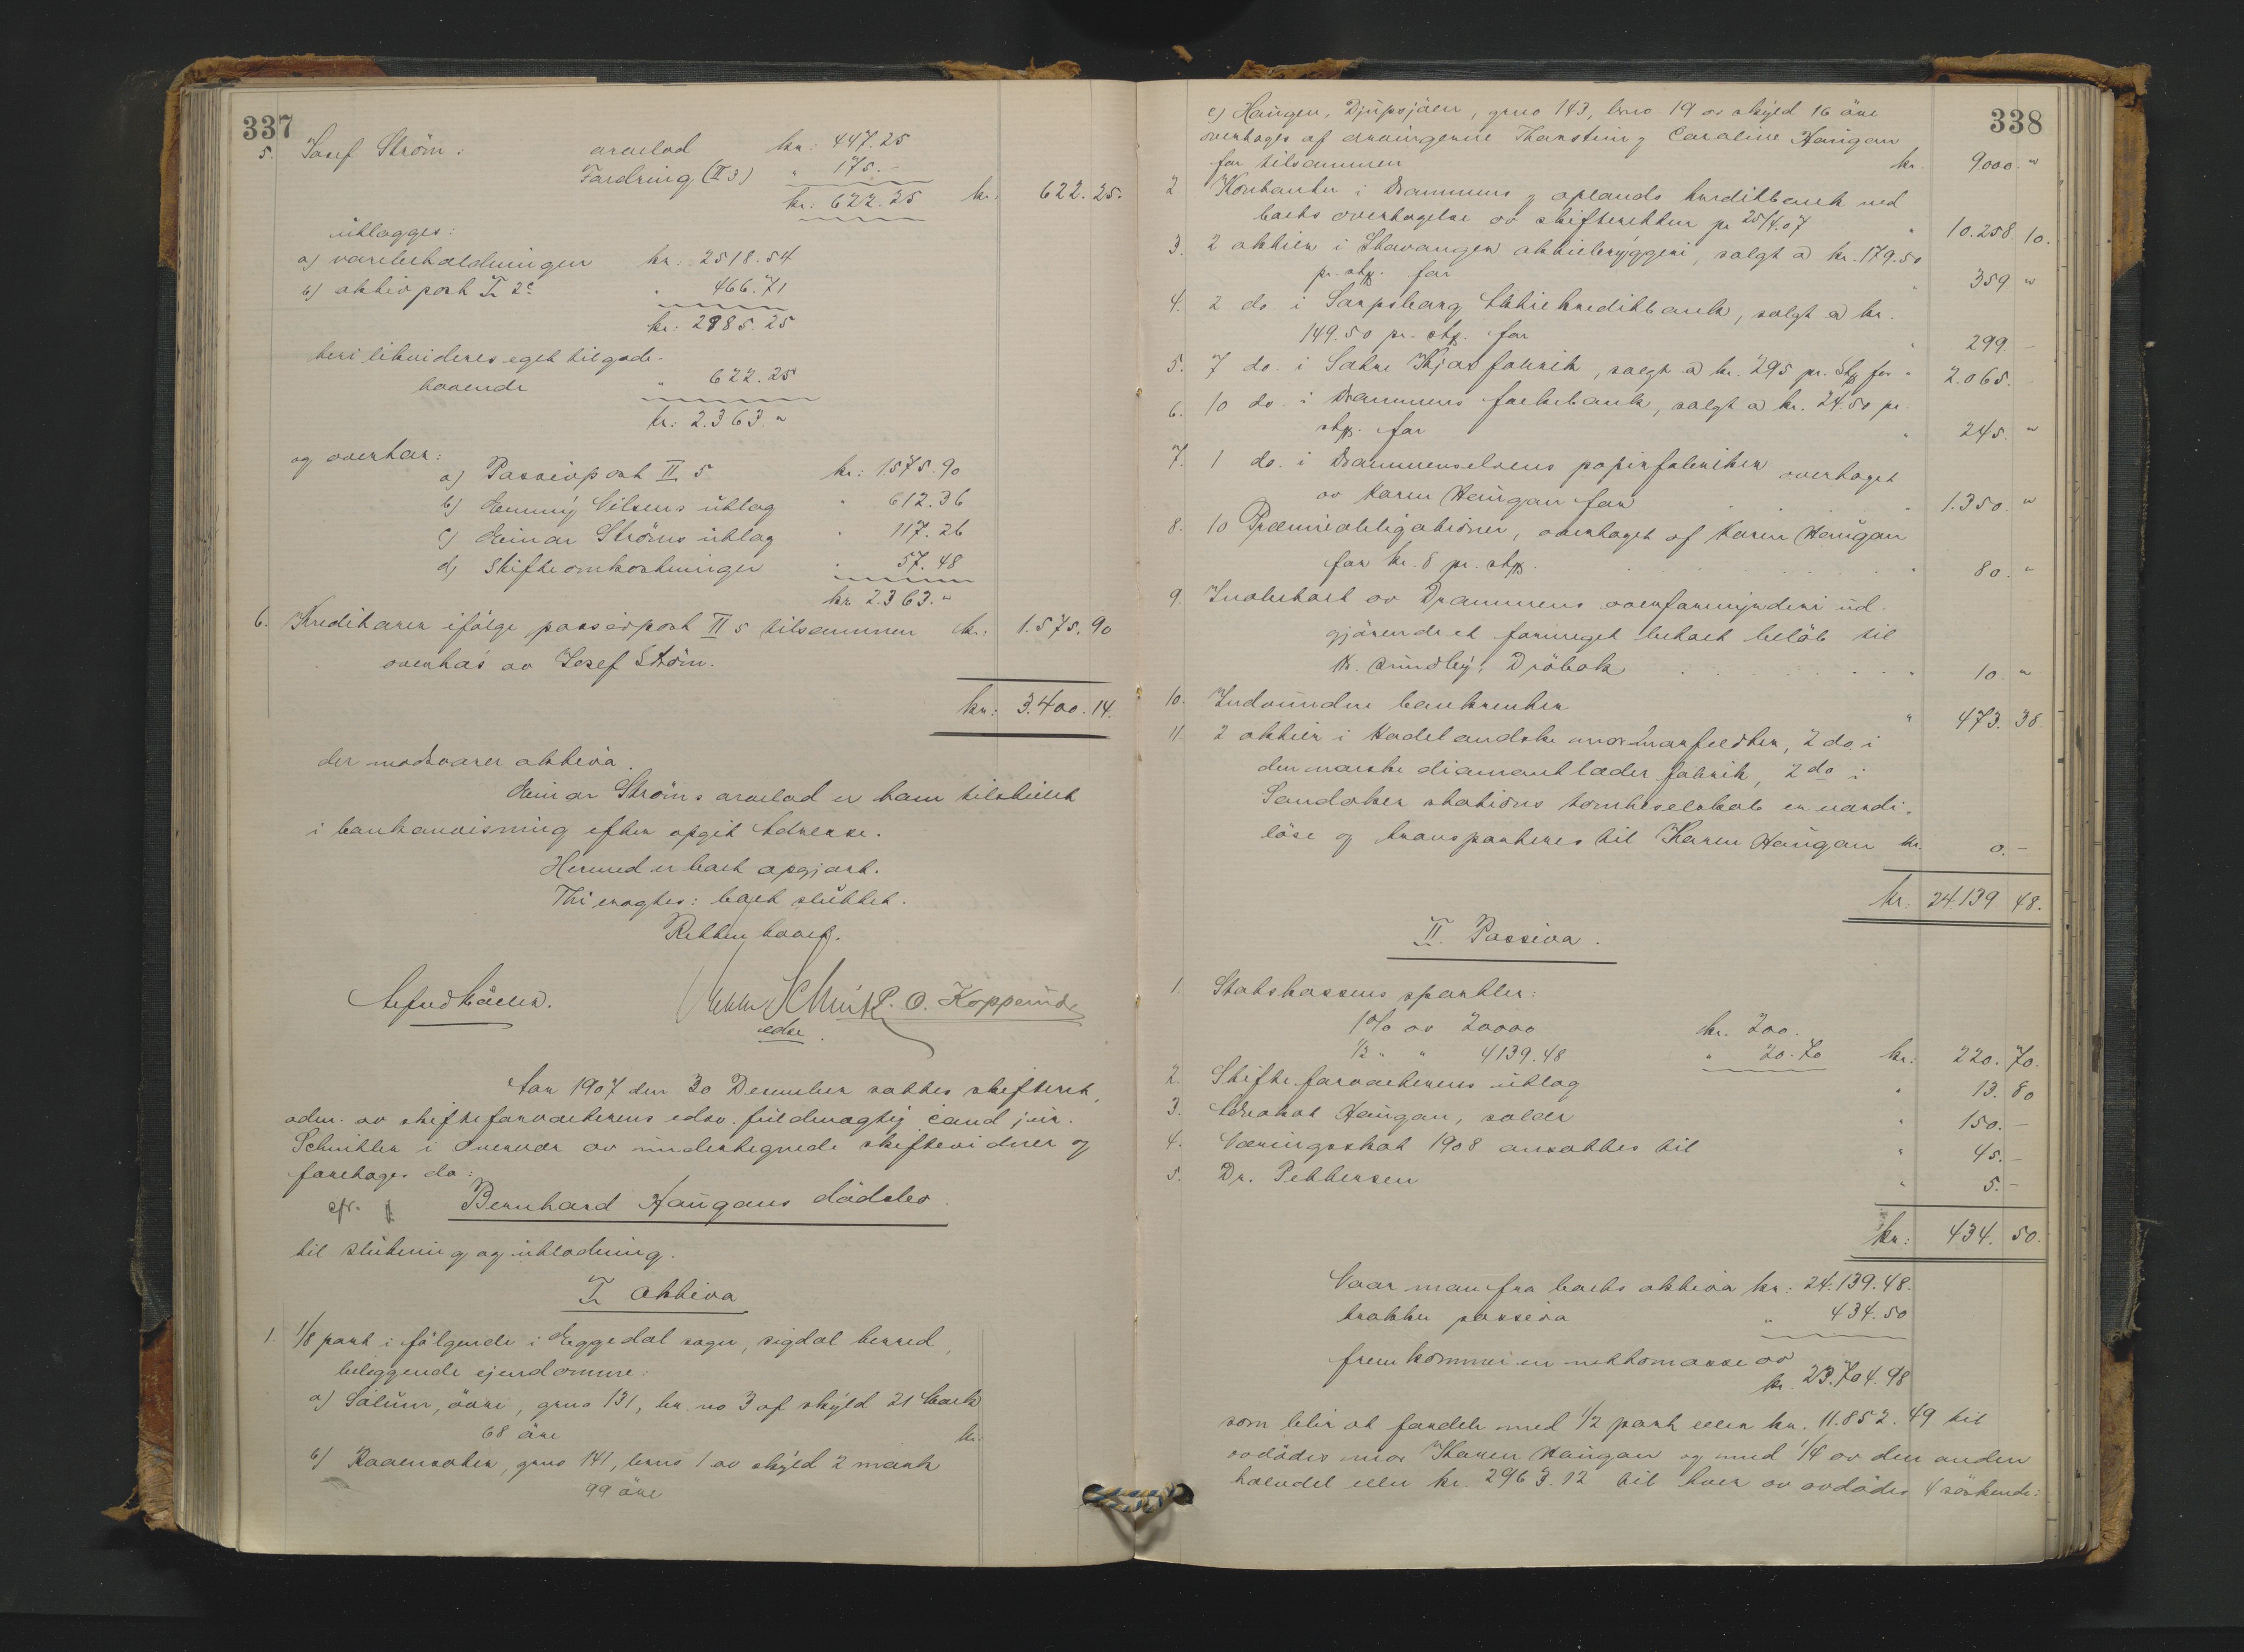 337
5. Josef Ström: arvelod kr: 447.25
Fordring (II 3) " 175.-
kr: 622.25 kr. 622.25.
utlægges:
a) varebeholdningen kr: 2518.54
b) aktivpost I 2c " 466.71
kr: 2985.25
heri likvideres eget tilgode-
havende " 622.25
kr: 2.363. "
og overtar:
a) Passivpost II 5 kr: 1575.90
b) Henny Nilsens utlæg " 612.36
c) Einar Ströms utlæg " 117.26
d) Skifteomkostninger " 57.48
kr 2.363. "
6. Kreditorer ifølge passivpost II 5 tilsammen kr: 1.575.90
overtas av Josef Ström.
kr: 3.400.14.
der modsvarer aktiva.
Einar Ströms arvelod er ham tilstillet
i bankanvisning efter opgit adresse.
Hermed er boet opgjort.
Thi eragtes: boet sluttet.
Retten hævet.
P. O. Kopperud
edsv.
Aar 1907 den 30 December sattes skifteret,
adm. av skifteforvalterens edsv. fuldmægtig cand jur.
Schnitler i overvær av undertegnede skiftevidner og
foretages da:
cfr. Bernhard Haugans dödsbo.
til slutning og utlodning.
I Aktiva
1. 1/8 part i følgende i Eggedal sogn, Sigdal herred,
beliggende ejendomme:
a) Solum, övre, gno 131, br. no 3 af skyld 21 mark
68 öre kr.
b) Raaensaker, gno 141, brno 1 av skyld 2 mark
99 öre
338
c) Haugen, Djupsjöen, gno 143, brno 19 av skyld 16 öre
overtages af arvingerne Thorstein og Caroline Haugan
for tilsammen kr. 9000. "
2 Kontanter i Drammens og oplands kreditbank ved
boets overtagelse av skifteretten pr 25/4.07 " 10.258 10.
3. 2 aktier i Stavanger aktiebryggeri, solgt a kr. 179.50
pr. stk. for " 359 "
4. 2 do. i Sarpsborg Aktiekreditbank, solgt a kr.
149.50 pr. stk. for " 299. -
5. 7 do. i Sætre Kjæxfabrik, solgt a kr. 295 pr. stk for " 2.065. -
6. 10 do. i Drammens folkebank, solgt a kr. 24.50 pr.
stk. for " 245. "
7. 1 do. i Drammenselvens papirfabriker overtaget
av Karen Haugan for " 1.350. "
8. 10 Præmieobligationer, overtaget af Karen Haugan
for kr. 8 pr. stk. " 80. "
9. Indbetalt av Drammens overformynderi ud-
gjørende et formeget betalt beløb til
K. Sundby, Dröbak " 10. "
10. Indvundne bankrenter " 473. 38.
11. 2 aktier i Hadelandske marmorfelter, 2 do. i
den norske diamantlæder fabrik, 2 do i
Sandaker stations tomteselskab er værdi-
løse og transporteres til Karen Haugan kr. 0. -
kr. 24139 48.
II. Passiva.
1. Statskassens sportler:
1% av 20000 kr. 200.
1/2 " " 4139.48 " 20.70 kr: 220.70.
2. Skifteforvalterens utlæg " 13.80
3. Advokat Haugan, salær " 150. -
4. Næringsskat 1908 ansættes til " 45. -
5. Dr. Pettersen " 5. -
kr: 434. 50.
Naar man fra boets aktiva kr: 24.139.48.
trækker passiva " 434.50
fremkommer en nettomasse av
kr. 23.704.98
som blir at fordele med 1/2 part eller kr. 11.852.49 til
avdödes mor Karen Haugan og med 1/4 av den anden
halvdel eller kr. 2963.12 til hver av avdödes 4 söskende: